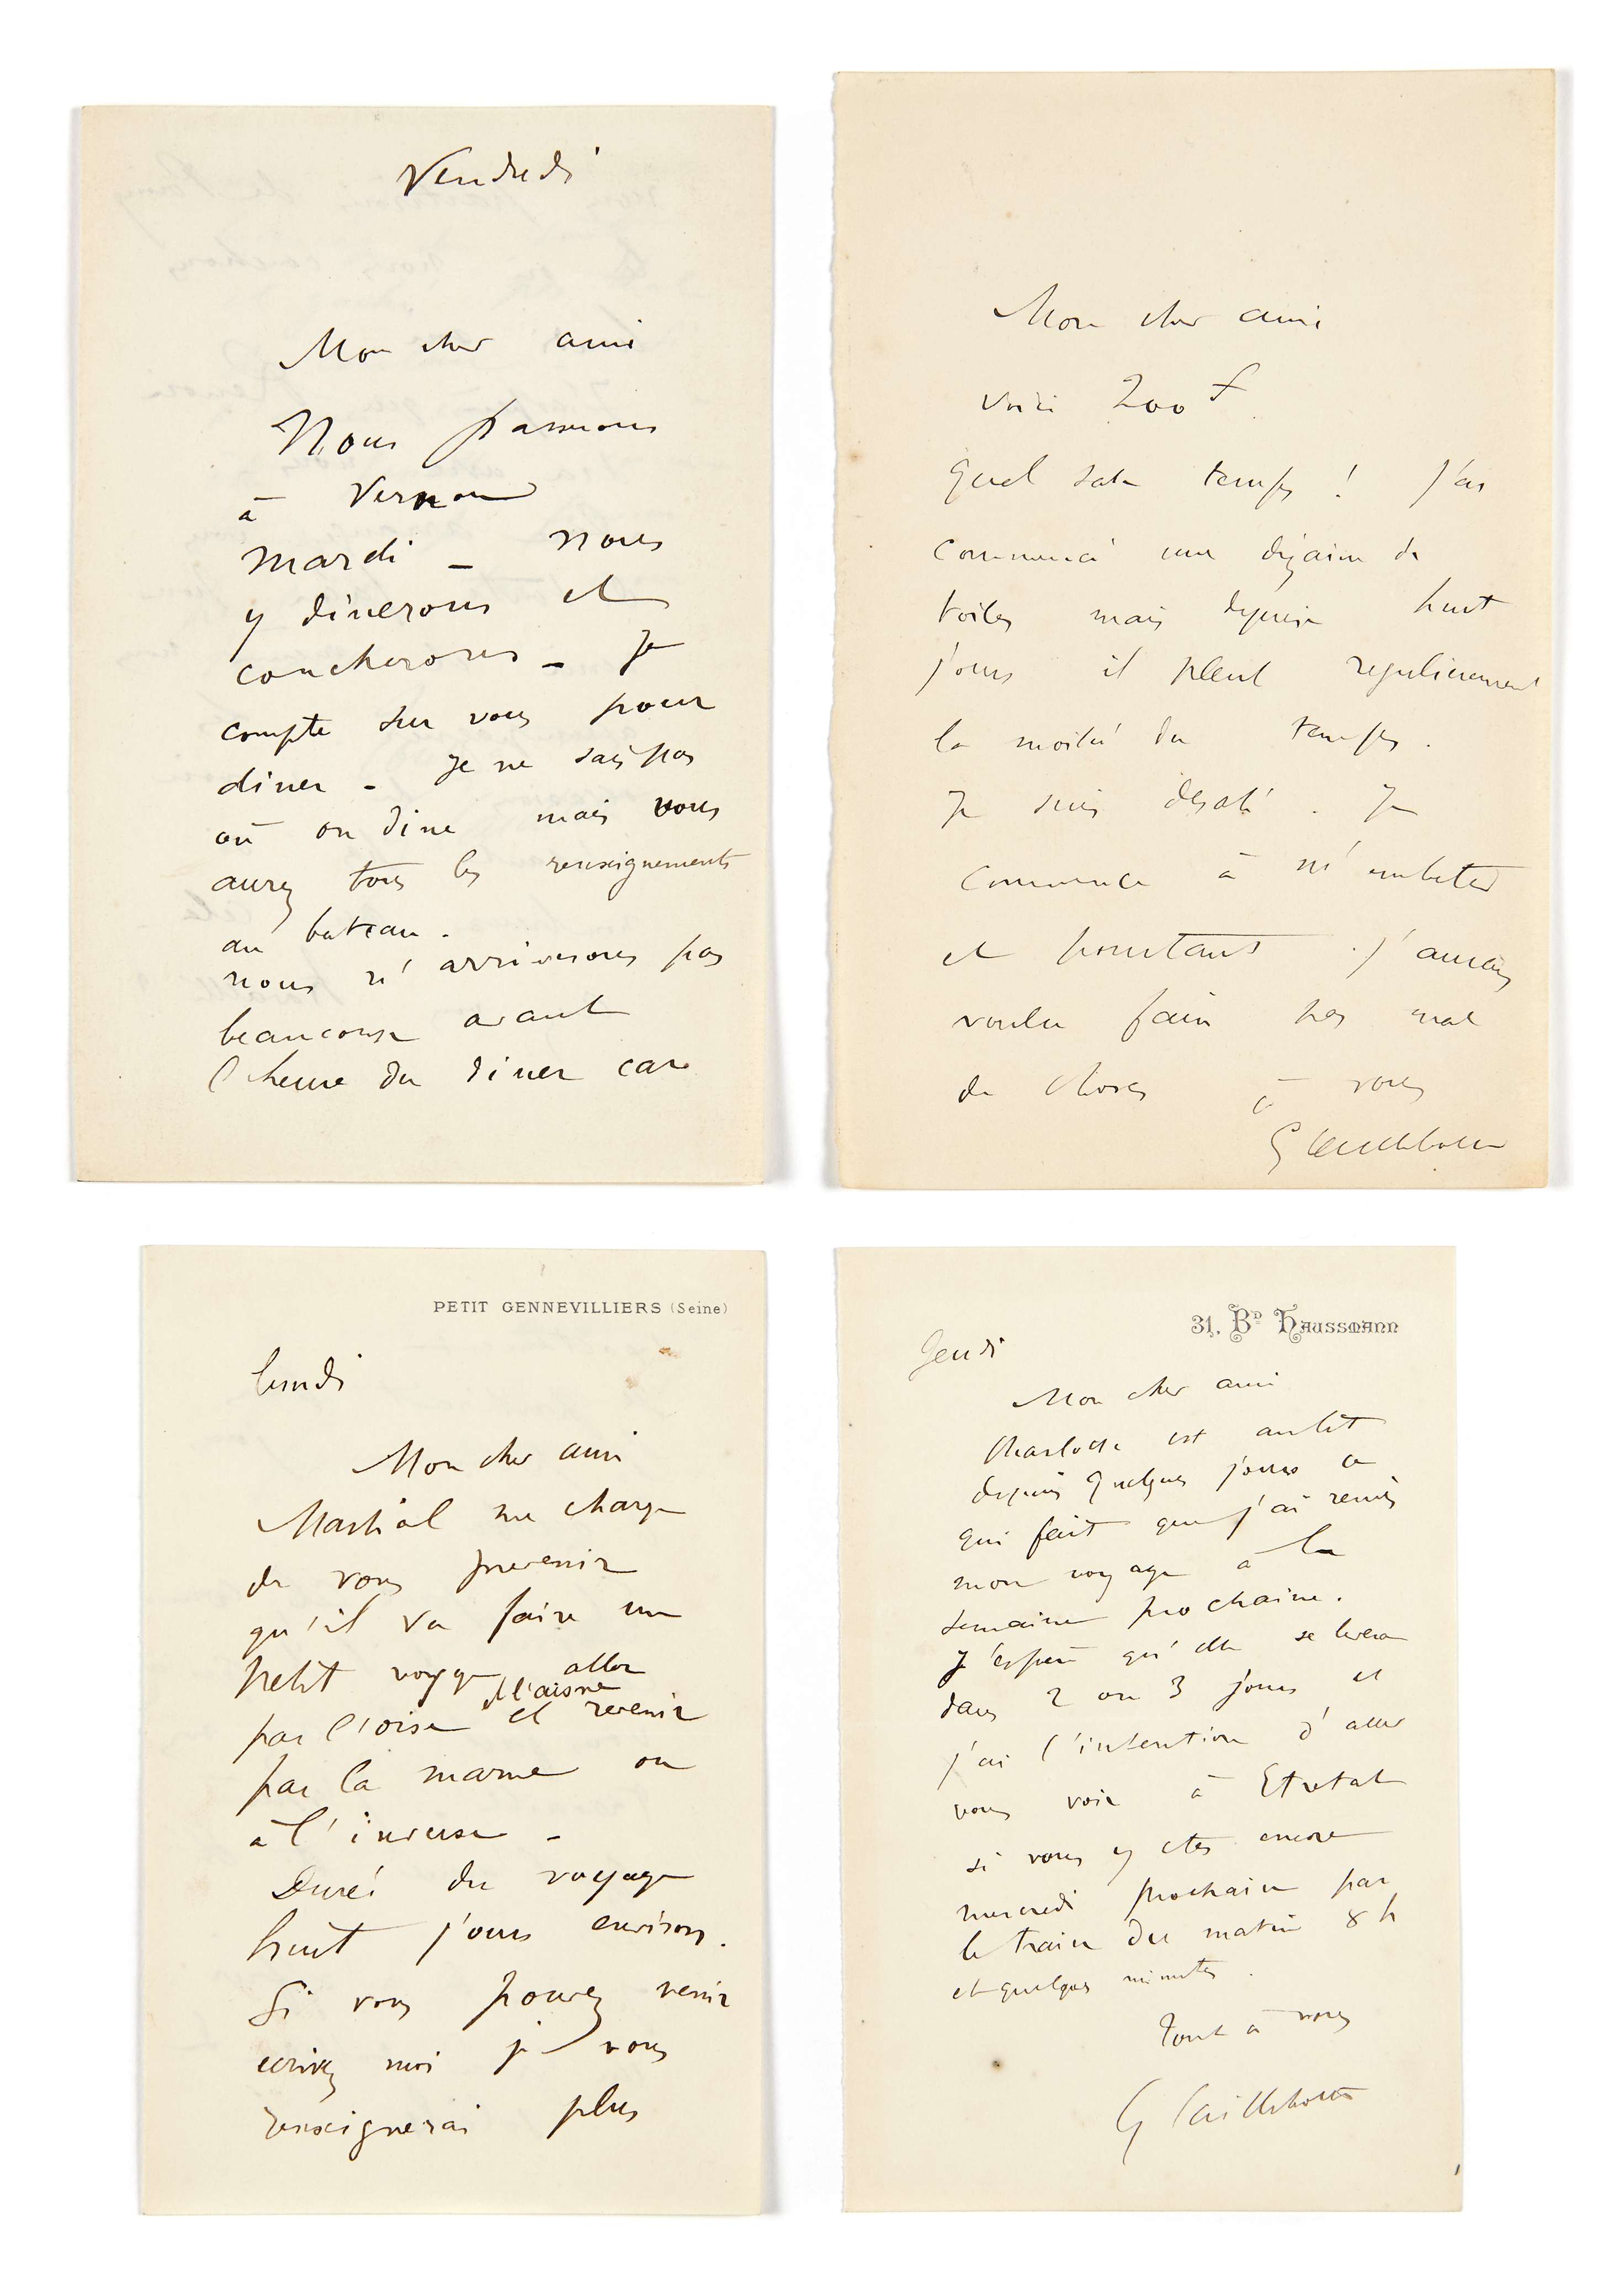 Vendredi
Mon cher ami
Nous passerons
à Vernon
mardi _ nous
y dinerons et
coucherons _ Je
compte sur vous pour
diner - Je ne sais pas
où on dine mais vous
aurez tous les renseignements
au bateau.
nous n'arriverons pas
beaucoup avant
l'heure du diner car
Mon cher ami
Voici 200 f
Quel sale temps ! J'ai
commencé une dizaine de
toiles mais depuis huit
jours il pleut regulierement
la moitié du temps.
Je suis désolé. Je
commence à m'embeter
et pourtant j'aurais
voulu faire pas mal
de choses à vous
G Caillebotte
PETIT GENNEVILLIERS (Seine)
lundi
Mon cher ami
Martial me charge
de vous prevenir
qu'il va faire un
petit voyage aller
par l'oise et l'aisne et revenir
par la marne ou
à l'inverse -
Durée du voyage
huit jours environ.
Si vous pouvez venir
ecrivez moi je vous
renseignerai plus
31. BD HAUSSMANN
Jeudi
Mon cher ami
Charlotte est au lit
depuis quelques jours ce
qui fait que j'ai remis
mon voyage à la
semaine prochaine.
J'espère qu'elle se levera
dans 2 ou 3 jours et
j'ai l'intention d'aller
vous voir à Etretat
si vous y etes encore
mercredi prochain par
le train du matin 8 h
et quelques minutes.
Tout à vous
G Caillebotte